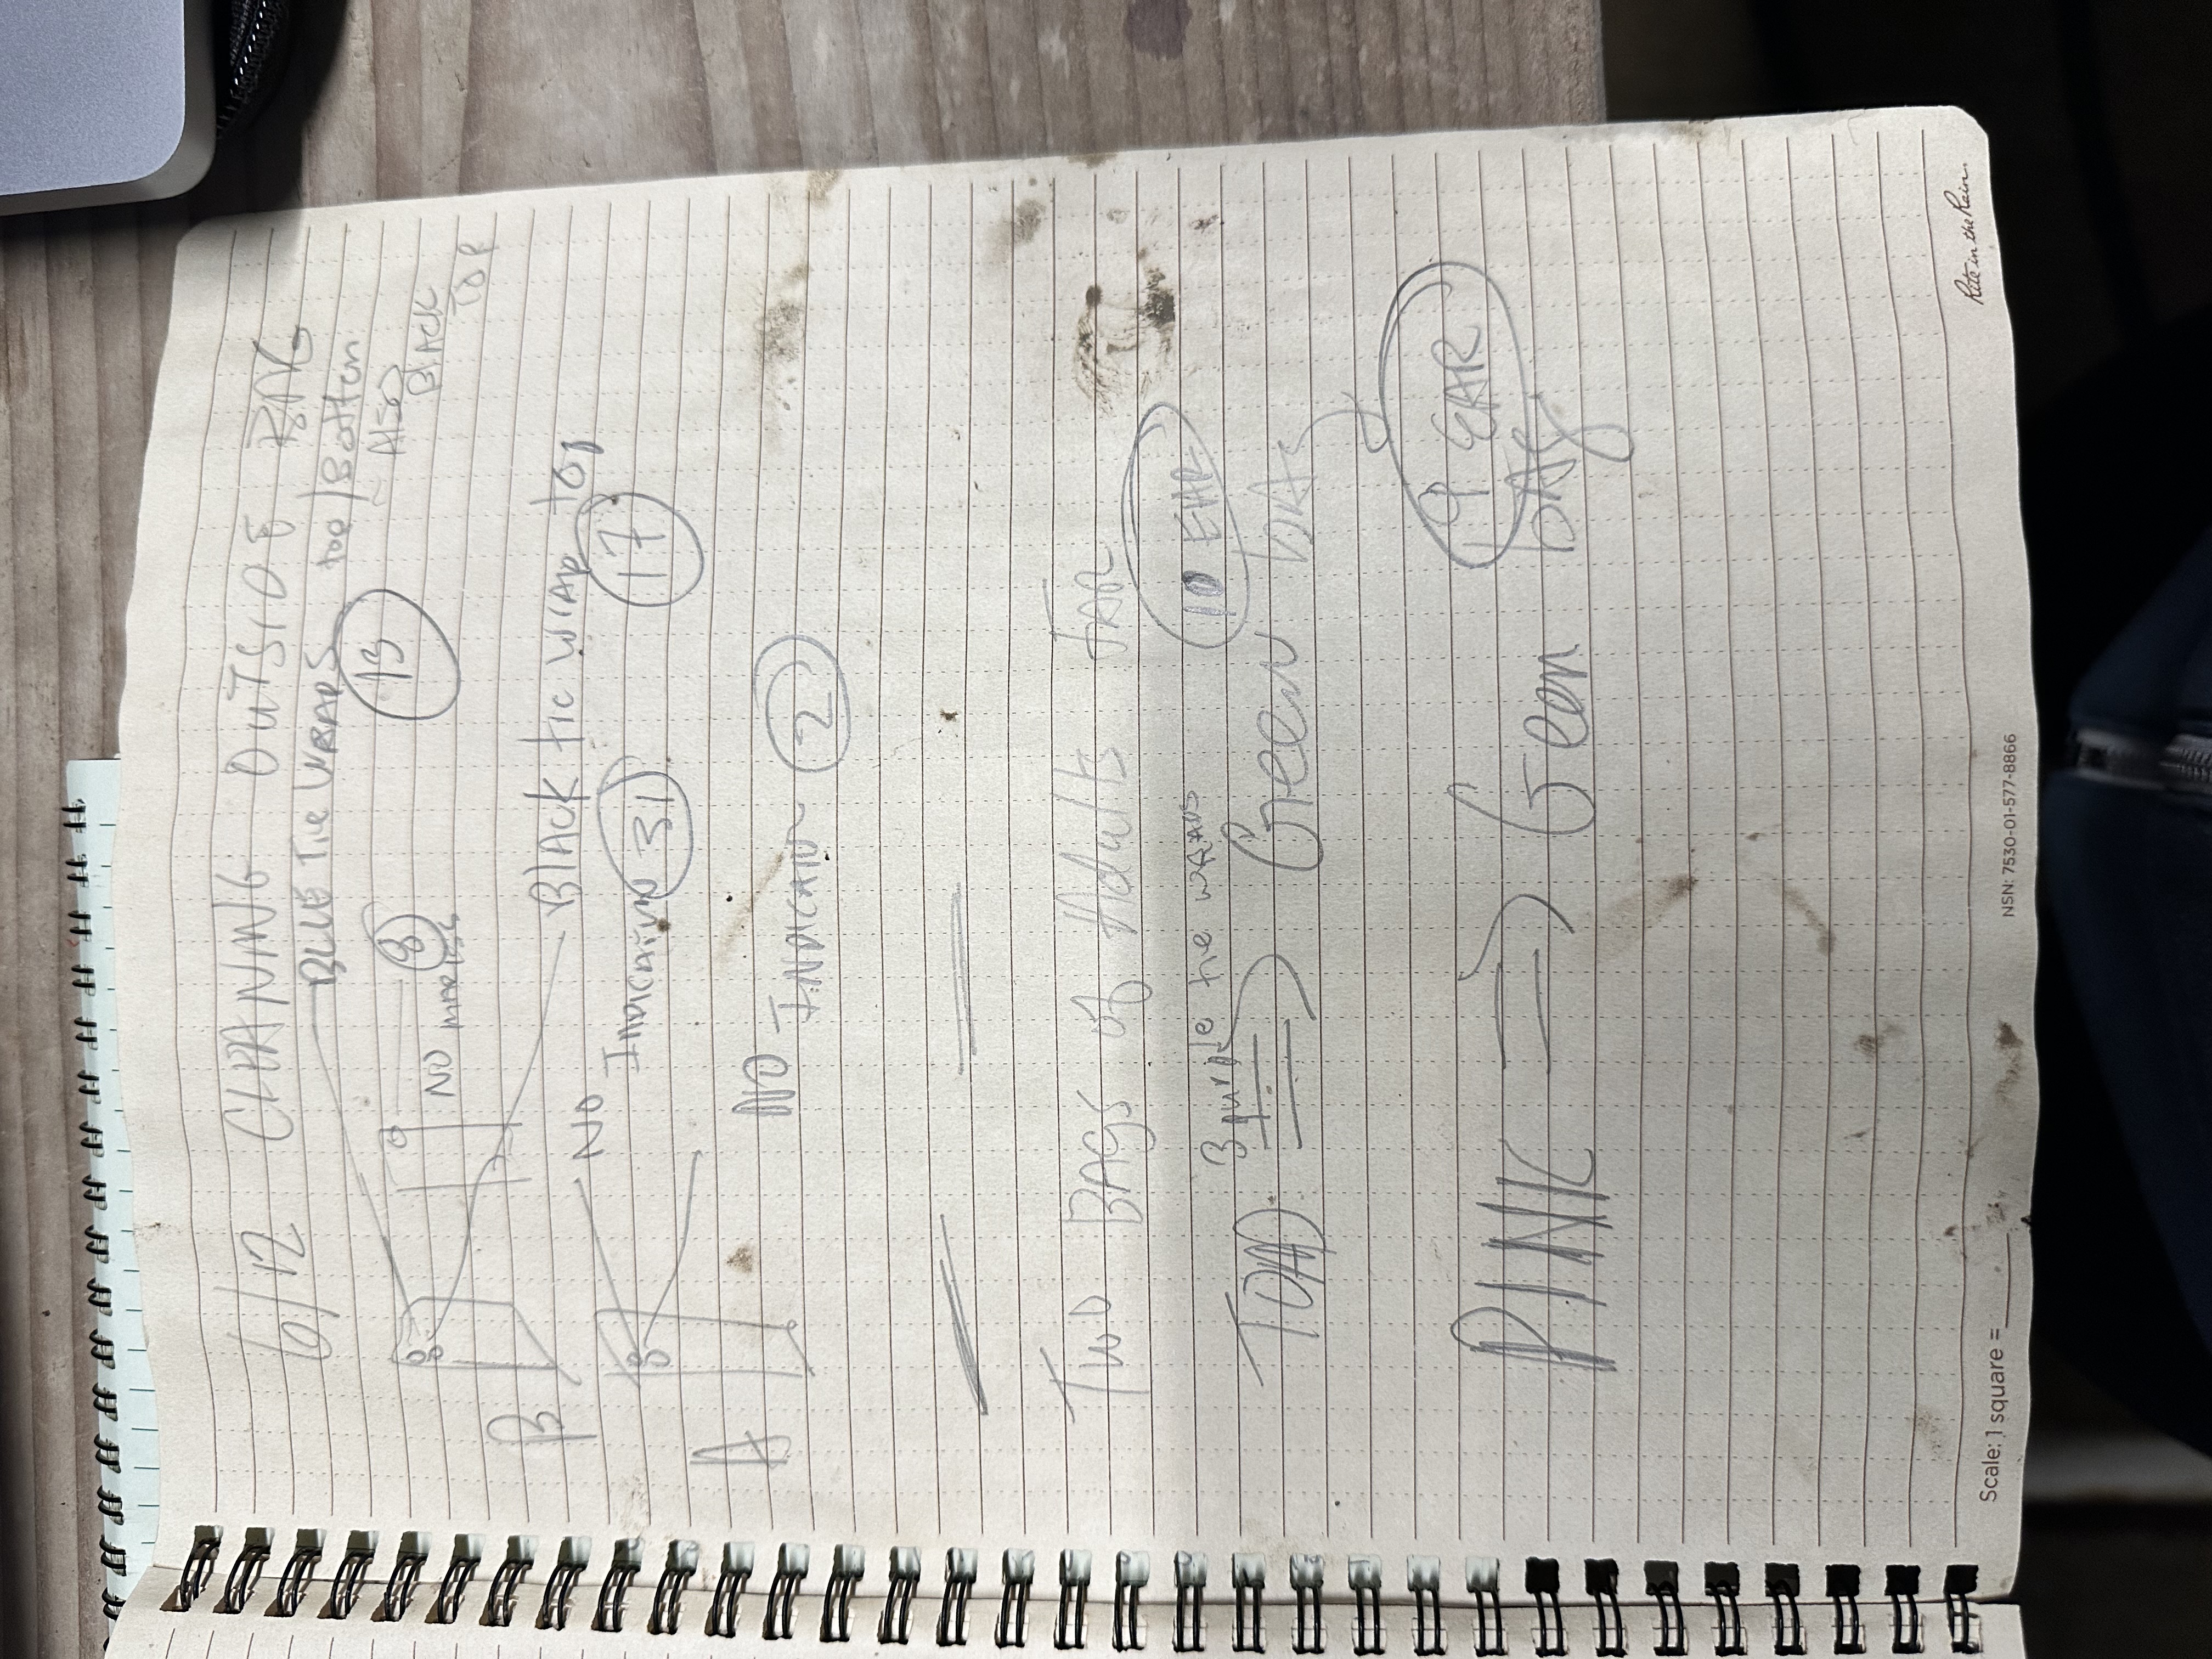 6/12 CLEANING OUTSIDE BAG
BLUE Tie WRAPS top/Bottom
8 13 - Also
NO BLACK
TOP
B
Black tie wrap top
NO
INDICATION 31 17
A
NO
INDICATION 2
Two BAGS of Adults FAR
3 purple tie wraps 10 EAR
TOAD => Green bAg
9 EAR
PINK => Geen bAg
Scale: 1 square =______
NSN: 7530-01-577-8866
Rite in the Rain.